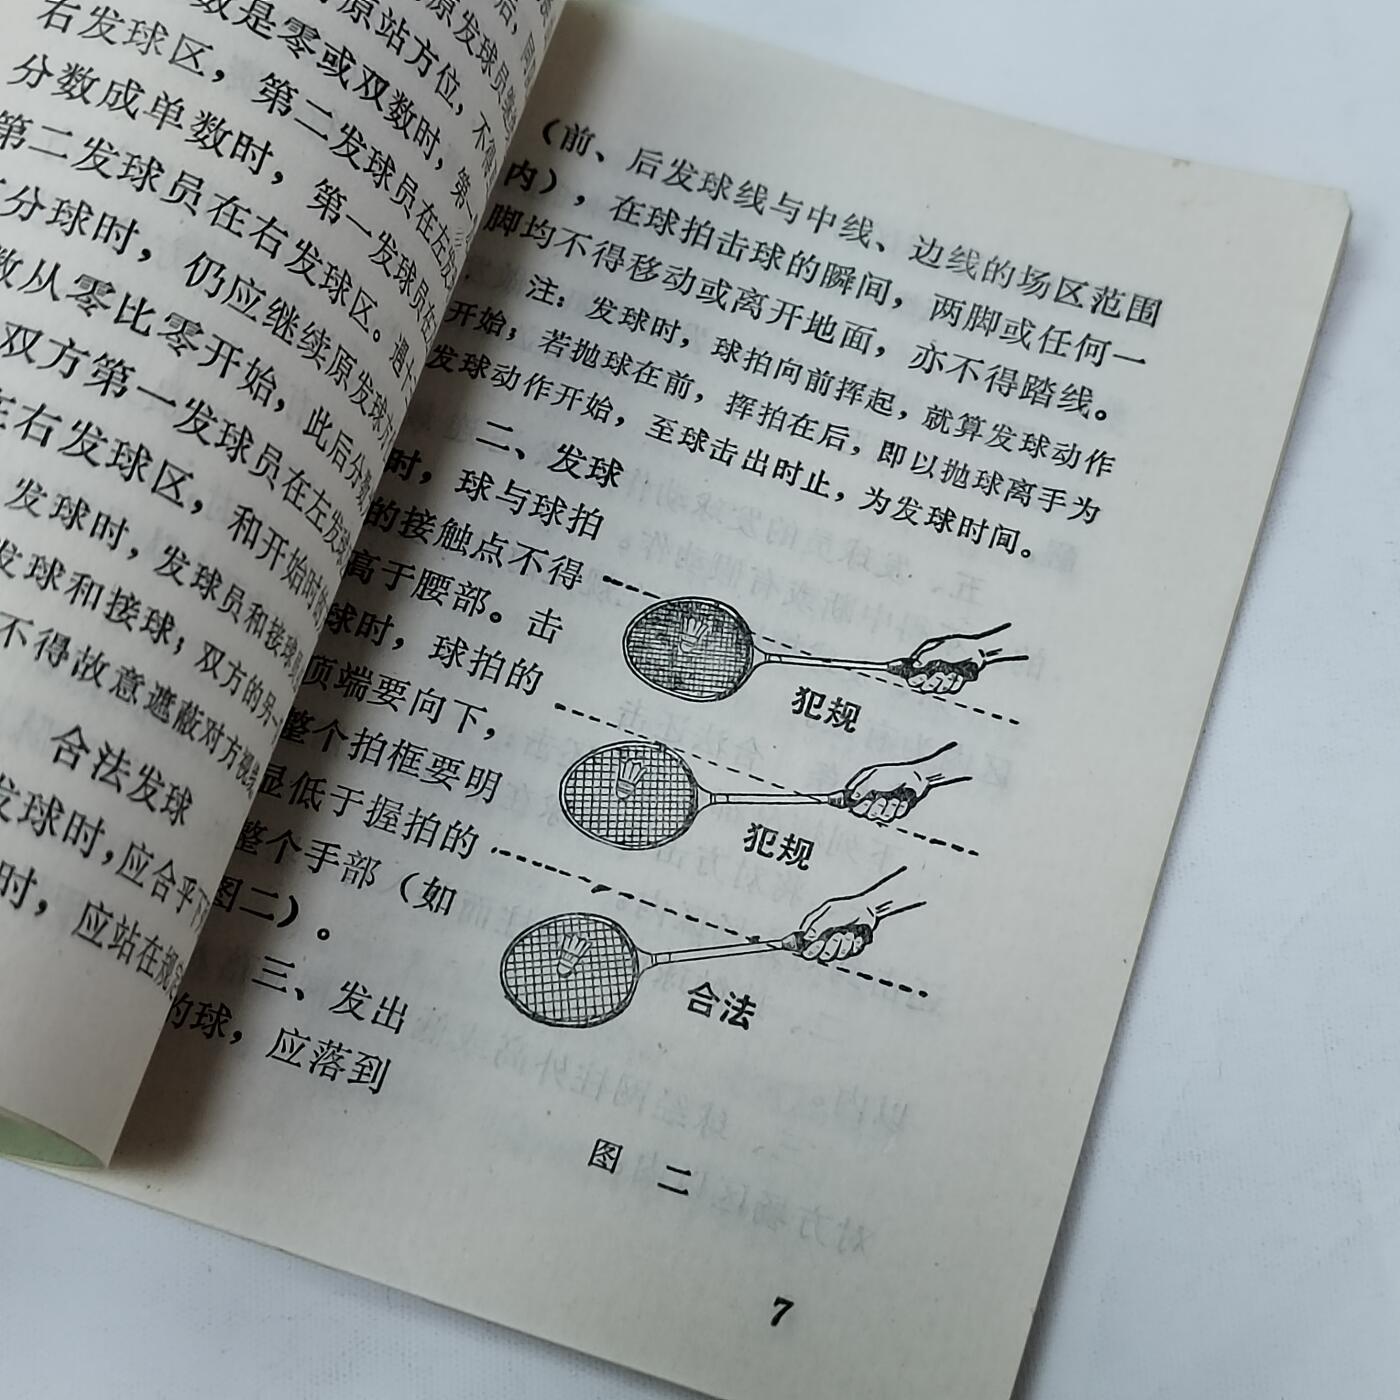 数是零或双数时，第一
右发球区，第二发球员在左发球
分数成单数时，第一发球员在
第二发球员在右发球区。遇十
分球时，仍应继续原发球方
数从零比零开始，此后分数
双方第一发球员在左发球
在右发球区，和开始时的
发球时，发球员和接球员
发球和接球；双方的另一
不得故意遮蔽对方视线
合法发球
发球时，应合乎下
时，应站在规定
（前、后发球线与中线、边线的场区范围
内），在球拍击球的瞬间，两脚或任何一
脚均不得移动或离开地面，亦不得踏线。
注：发球时，球拍向前挥起，就算发球动作
开始；若抛球在前，挥拍在后，即以抛球离手为
发球动作开始，至球击出时止，为发球时间。
二、发球
时，球与球拍
的接触点不得
高于腰部。击
球时，球拍的
顶端要向下，
整个拍框要明
显低于握拍的
整个手部（如
图二）。
三、发出
的球，应落到
犯规
犯规
合法
图 二
7